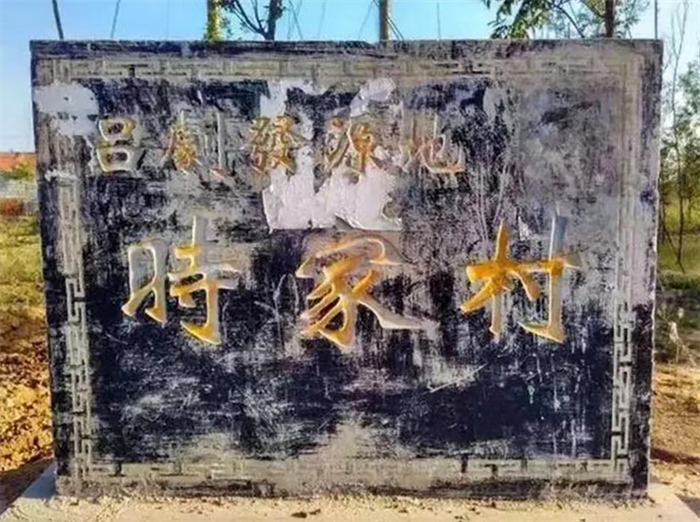 吕劇發源地
時家村